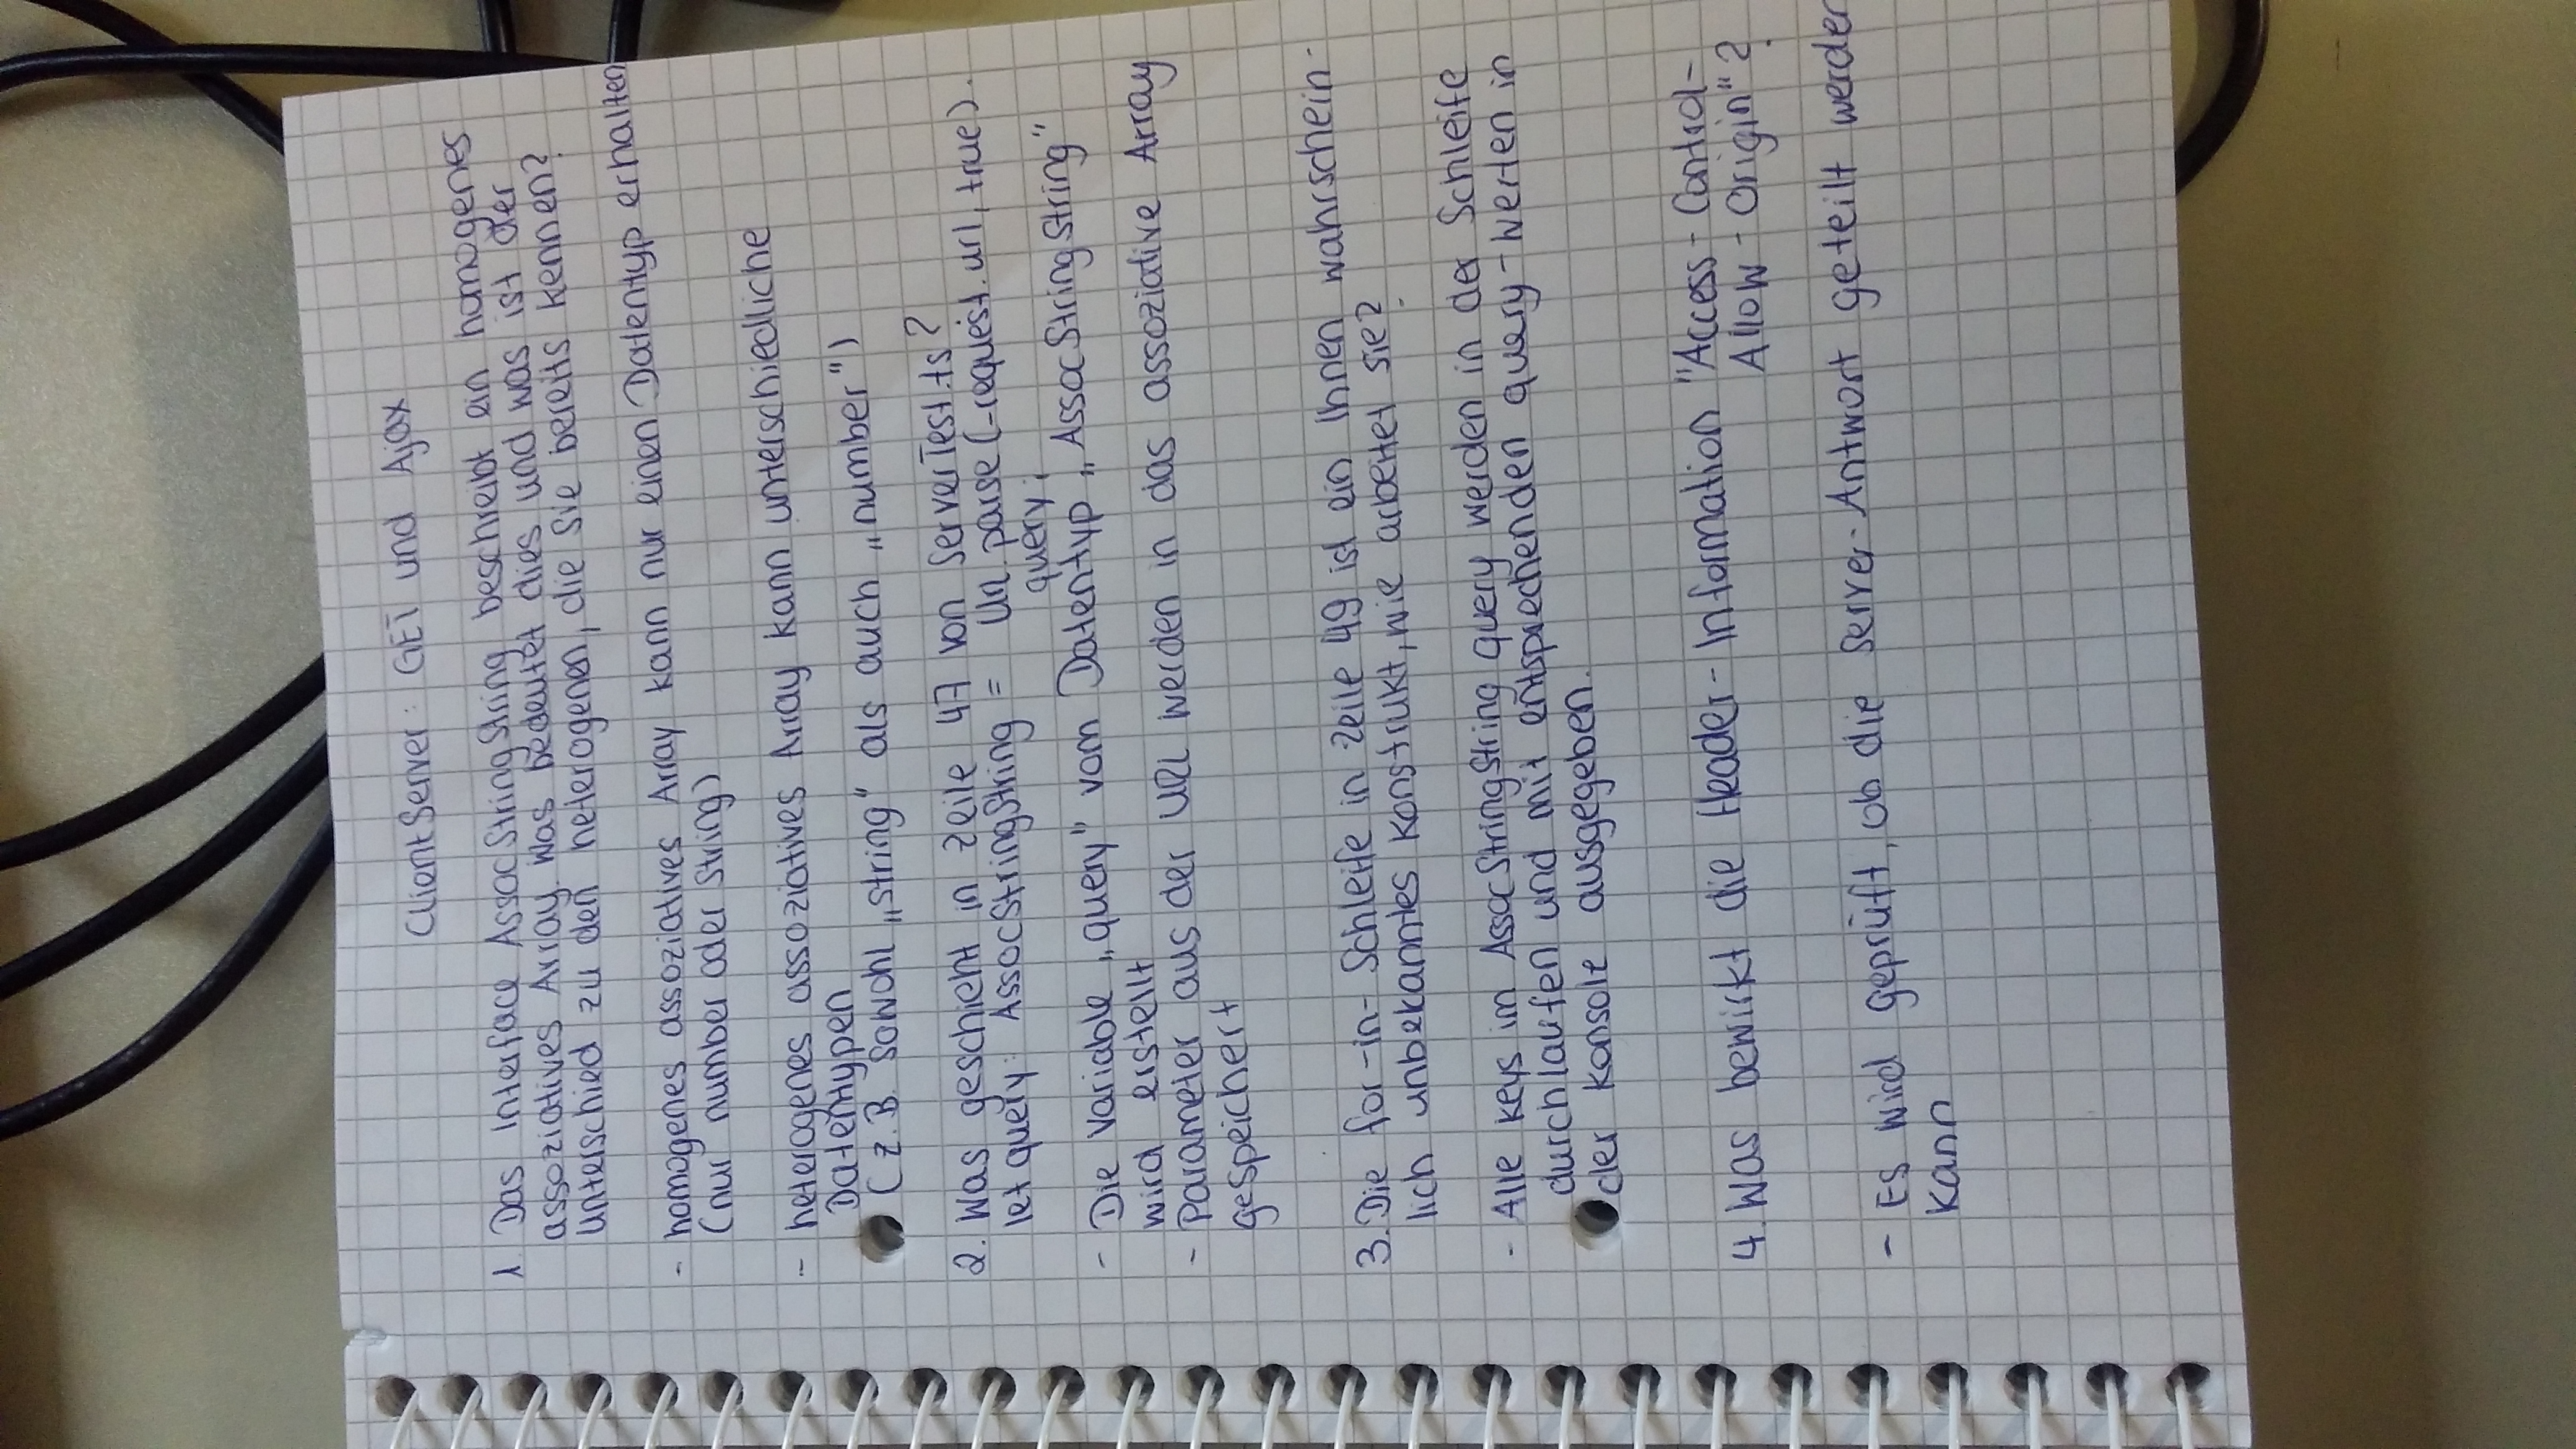 Client Server: GET und Ajax
1. Das Interface AssocStringString beschreibt ein homogenes
assoziatives Array. Was bedeutet dies und was ist der
Unterschied zu den heterogenen, die Sie bereits kennen?
- homogenes assoziatives Array kann nur einen Datentyp erhalten
(nur number oder String)
- heterogenes assoziatives Array kann unterschiedliche
Datentypen
(z.B. sowohl „string" als auch „number")
2. Was geschieht in Zeile 47 von ServerTest.ts?
let query: AssocStringString = Url.parse(-request.url, true).
query;
- Die Variable „query" vom Datentyp „AssocStringString"
wird erstellt
- Parameter aus der URL werden in das assoziative Array
gespeichert
3. Die for-in-Schleife in Zeile 49 ist ein Ihnen wahrschein-
lich unbekanntes Konstrukt, wie arbeitet sie?
- Alle keys im AssocStringString query werden in der Schleife
durchlaufen und mit entsprechenden query-Werten in
der Konsole ausgegeben.
4. Was bewirkt die Header-Information "Access-Control-
Allow-Origin"?
- Es wird geprüft, ob die Server-Antwort geteilt werden
kann